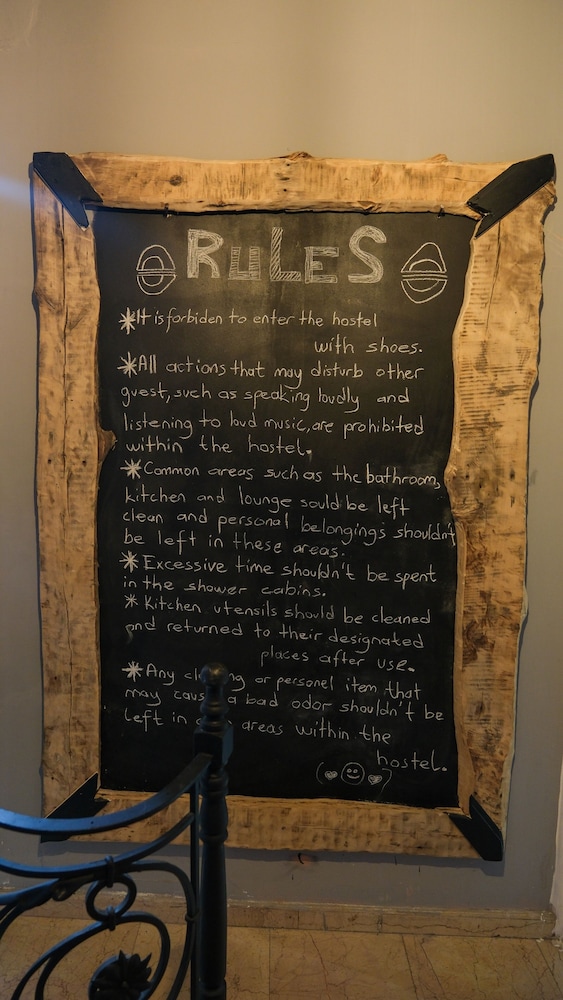 RULES
*It is forbiden to enter the hostel
with shoes.
*All actions that may disturb other
guest, such as speaking loudly and
listening to loud music, are prohibited
within the hostel.
*Common areas such as the bathroom,
kitchen and lounge sould be left
clean and personal belongings shouldn't
be left in these areas.
*Excessive time shouldn't be spent
in the shower cabins.
*Kitchen utensils should be cleaned
and returned to their designated
places after use.
*Any or personel item that
may cause a bad odor shouldn't be
left in areas within the
hostel.